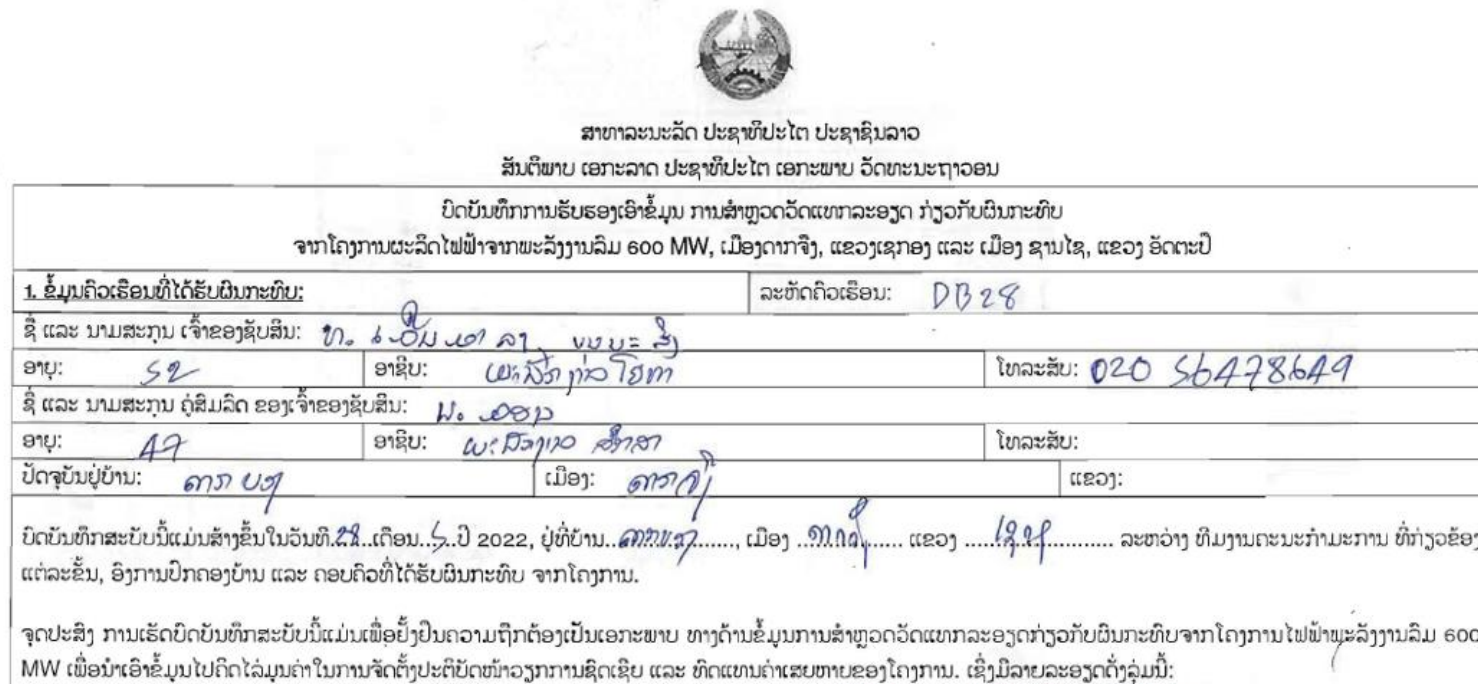 ສາທາລະນະລັດ ປະຊາທິປະໄຕ ປະຊາຊົນລາວ
ສັນຕິພາບ ເອກະລາດ ປະຊາທິປະໄຕ ເອກະພາບ ວັດທະນະຖາວອນ
ບົດບັນທຶກການຮັບຮອງເອົາຂໍ້ມູນ ການສໍາຫຼວດວັດແທກລະອຽດ ກ່ຽວກັບຜົນກະທົບ
ຈາກໂຄງການຜະລິດໄຟຟ້າຈາກພະລັງງານລົມ 600 MW, ເມືອງດາກຈຶງ, ແຂວງເຊກອງ ແລະ ເມືອງ ຊານໄຊ, ແຂວງ ອັດຕະປື
1. ຂໍ້ມູນຄົວເຮືອນທີ່ໄດ້ຮັບຜົນກະທົບ: ລະຫັດຄົວເຮືອນ: DB28
ຊື່ ແລະ ນາມສະກຸນ ເຈົ້າຂອງຊັບສິນ: ທ.
ອາຍຸ: 52 ອາຊີບ: ໂທລະສັບ: 020 56478649
ຊື່ ແລະ ນາມສະກຸນ ຄູ່ສົມລົດ ຂອງເຈົ້າຂອງຊັບສິນ:
ອາຍຸ: 47 ອາຊີບ: ໂທລະສັບ:
ປັດຈຸບັນຢູ່ບ້ານ: ດາກ ເມືອງ: ດາກຈຶງ ແຂວງ:
ບົດບັນທຶກສະບັບນີ້ແມ່ນສ້າງຂຶ້ນໃນວັນທີ.28..ເດືອນ..5..ປີ 2022, ຢູ່ທີ່ບ້ານ.., ເມືອງ ...ດາກຈຶງ... ແຂວງ ...... ລະຫວ່າງ ທີມງານຄະນະກໍາມະການ ທີ່ກ່ຽວຂ້ອງ
ແຕ່ລະຂັ້ນ, ອົງການປົກຄອງບ້ານ ແລະ ຄອບຄົວທີ່ໄດ້ຮັບຜົນກະທົບ ຈາກໂຄງການ.
ຈຸດປະສົງ ການເຮັດບົດບັນທຶກສະບັບນີ້ແມ່ນເພື່ອຢັ້ງຢືນຄວາມຖືກຕ້ອງເປັນເອກະພາບ ທາງດ້ານຂໍ້ມູນການສໍາຫຼວດວັດແທກລະອຽດກ່ຽວກັບຜົນກະທົບຈາກໂຄງການໄຟຟ້າພະລັງງານລົມ 600
MW ເພື່ອນໍາເອົາຂໍ້ມູນໄປຄິດໄລ່ມູນຄ່າໃນການຈັດຕັ້ງປະຕິບັດໜ້າວຽກການຊົດເຊີຍ ແລະ ທົດແທນຄ່າເສຍຫາຍຂອງໂຄງການ. ເຊິ່ງມີລາຍລະອຽດດັ່ງລຸ່ມນີ້: